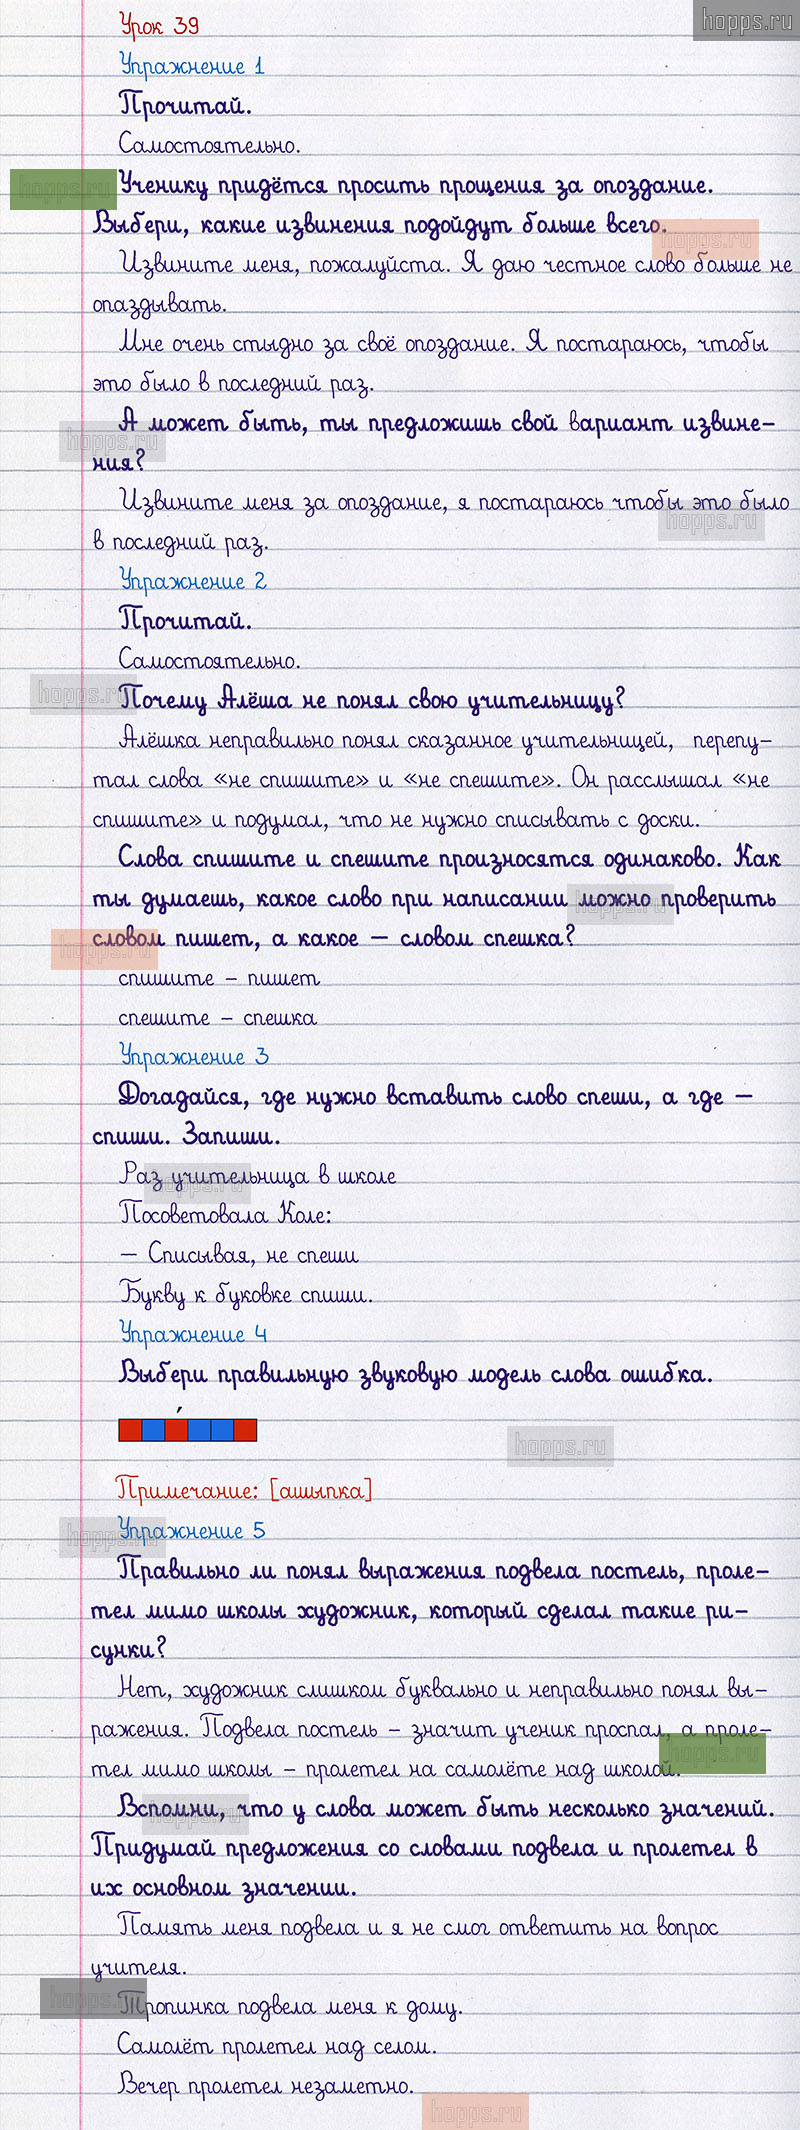 hopps.ru
Урок 39
Упражнение 1
Прочитай.
Самостоятельно.
hopps.ru
Ученику придётся просить прощения за опоздание.
Выбери, какие извинения подойдут больше всего.
hopps.ru
Извините меня, пожалуйста. Я даю честное слово больше не
опаздывать.
Мне очень стыдно за своё опоздание. Я постараюсь, чтобы
это было в последний раз.
А может быть, ты предложишь свой вариант извине-
hopps.ru
ния?
Извините меня за опоздание, я постараюсь чтобы это было
hopps.ru
в последний раз.
Упражнение 2
Прочитай.
Самостоятельно.
hopps.ru
Почему Алёша не понял свою учительницу?
Алёшка неправильно понял сказанное учительницей, перепу-
тал слова «не спишите» и «не спешите». Он расслышал «не
спишите» и подумал, что не нужно списывать с доски.
Слова спишите и спешите произносятся одинаково. Как
ты думаешь, какое слово при написании можно проверить
hopps.ru
словом пишет, а какое – словом спешка?
hopps.ru
спишите – пишет
спешите – спешка
Упражнение 3
Догадайся, где нужно вставить слово спеши, а где –
спиши. Запиши.
Раз учительница в школе
hopps.ru
Посоветовала Коле:
– Списывая, не спеши
Букву к буковке спиши.
Упражнение 4
Выбери правильную звуковую модель слова ошибка.
hopps.ru
Примечание: [ашыпка]
Упражнение 5
hopps.ru
Правильно ли понял выражения подвела постель, проле-
тел мимо школы художник, который сделал такие ри-
сунки?
Нет, художник слишком буквально и неправильно понял вы-
ражения. Подвела постель – значит ученик проспал, а проле-
hopps.ru
тел мимо школы – пролетел на самолёте над школой.
Вспомни, что у слова может быть несколько значений.
hopps.ru
Придумай предложения со словами подвела и пролетел в
их основном значении.
Память меня подвела и я не смог ответить на вопрос
учителя.
hopps.ru
Тропинка подвела меня к дому.
Самолёт пролетел над селом.
Вечер пролетел незаметно.
hopps.ru